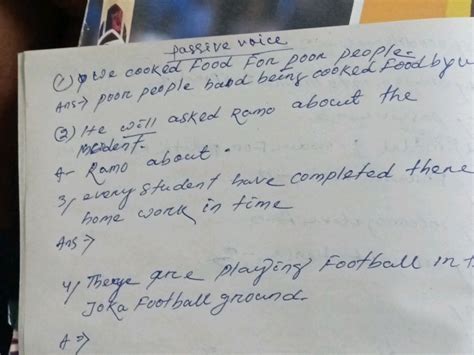 passive voice
(1) We cooked Food For poor people.
Ans→ poor people being cooked Food by
(2) He will asked Ramo about the
incident.
A- Ramo about.
3) every student have completed there
home work in time
Ans→
4) are playing Football in
Joka Football ground.
A→